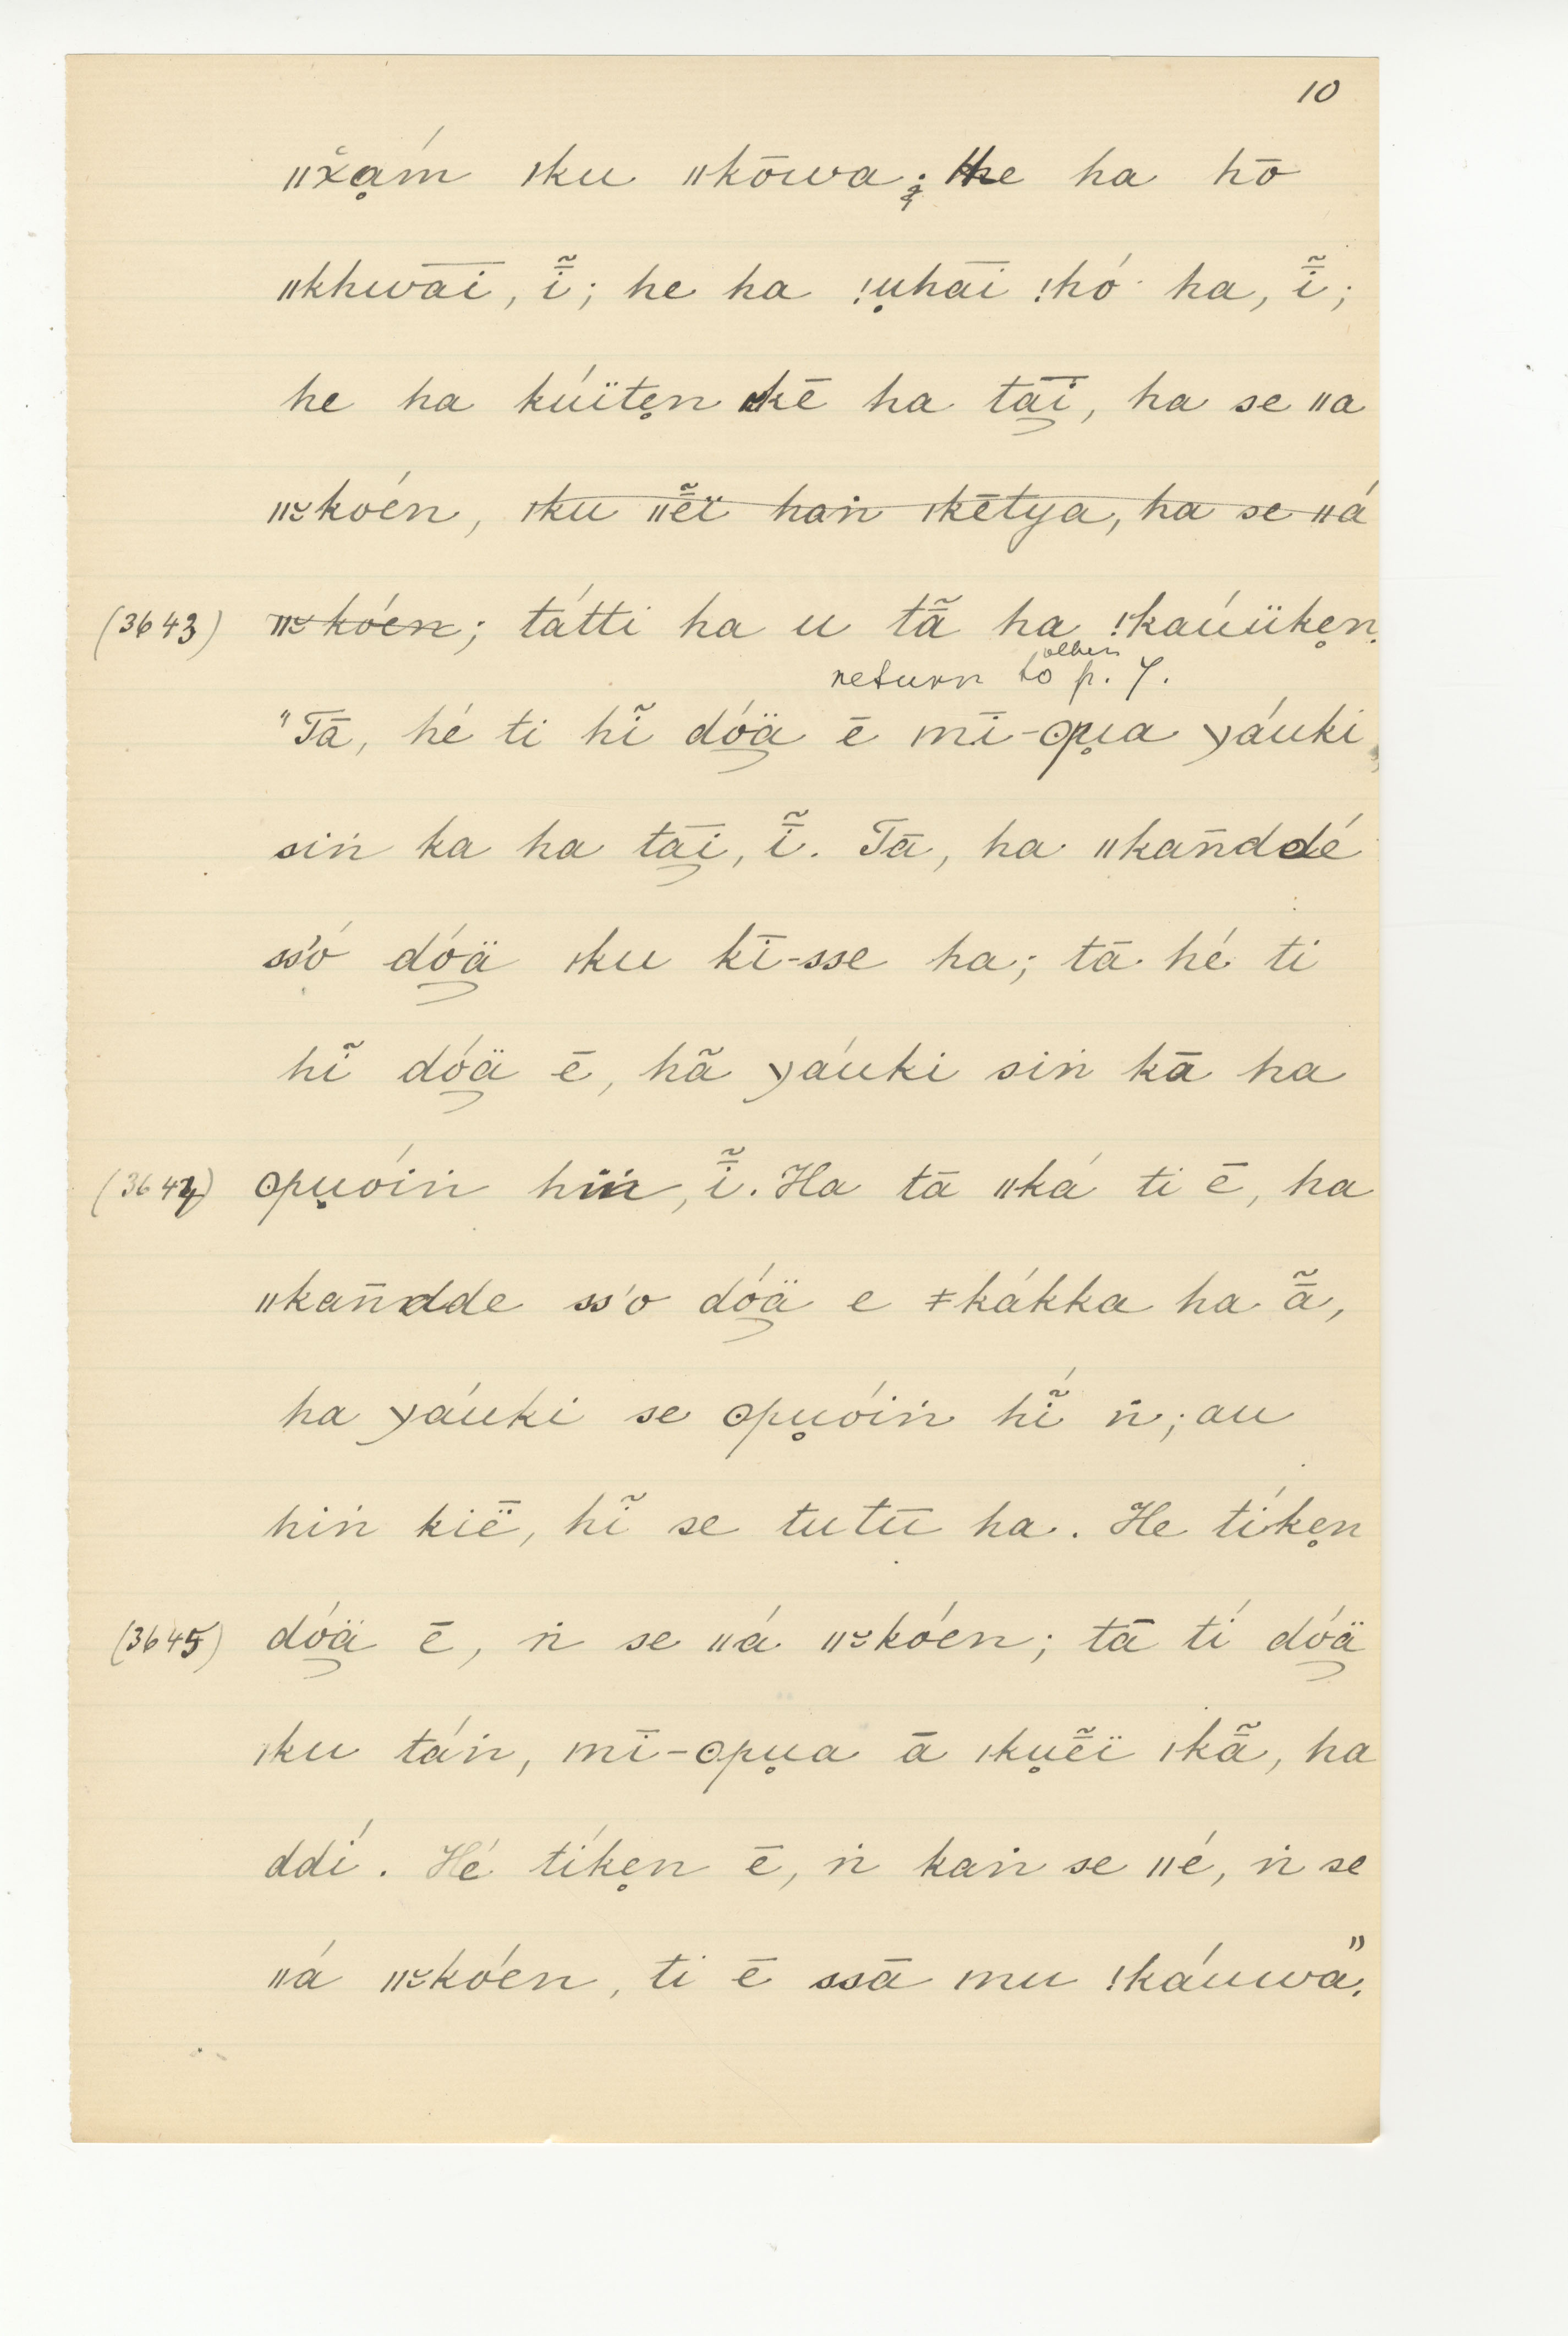 10
ǁx̌ạḿ ǀku ǁkōwa; he ha hō
ǁkhwāī, ĩ̄; he ha !u̥hāī !hó ha, ĩ̄;
he ha kúïte̥n ǀkē ha tāī, ha se ǁa
ǁ˜koén, ǀku ǁẽ̄ï haṅ ǀkētya, ha se ǁá
(3643) ǁ˜kóen; tátti ha u tã̄ ha !kaúüke̥n.
return to other p. 7.
"Tā, hé ti hĩ dóä ē mī-ʘpu̥a yáuki
siṅ ka ha tāī, ĩ̄. Tā, ha ǁkan̄ddé
ss'ó dóä ǀku kī-sse ha; tā hé ti
hĩ dóä ē, hã yáuki siṅ kā ha
(3644) ʘpu̥óiṅ hiṅ, ĩ̄. Ha tā ǁká ti ē, ha
ǁkan̄dde ss'o dóä e ǂkákka ha ã̄,
ha yáuki se ʘpu̥óiṅ hĩ́ ṅ; au
hiṅ kiē̈, hĩ se tutū ha. He tíke̥n
(3645) dóä ē, ṅ se ǁá ǁ˜kóen; tā tí dóä
ǀku táṅ, mī-ʘpu̥a ā ǀku̥ẽ̄ï ǀkã̄, ha
ddí. Hé tíke̥n ē, ṅ kaṅ se ǁé, ṅ se
ǁá ǁ˜kóen, ti ē ssā mu !káuwa."